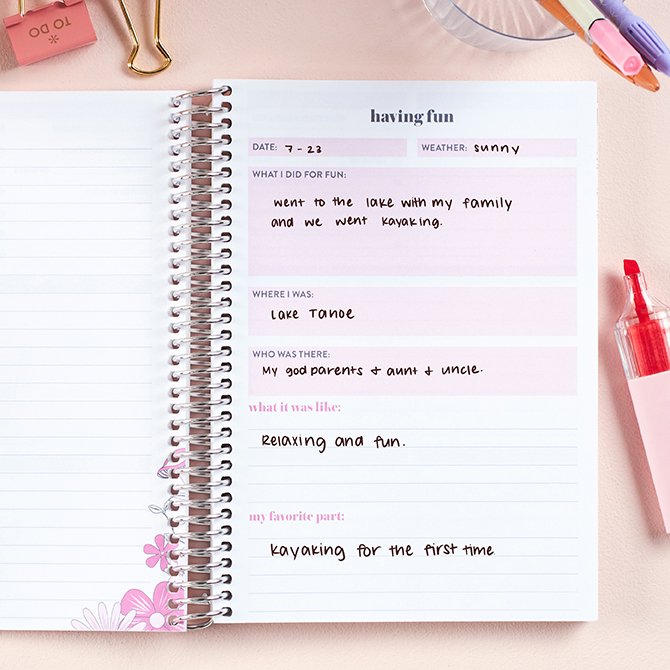 TO DO
having fun
DATE: 7-23 WEATHER: sunny
WHAT I DID FOR FUN:
went to the lake with my family
and we went kayaking.
WHERE I WAS:
Lake Tahoe
WHO WAS THERE:
My godparents + aunt + uncle.
what it was like:
Relaxing and fun.
my favorite part:
kayaking for the first time